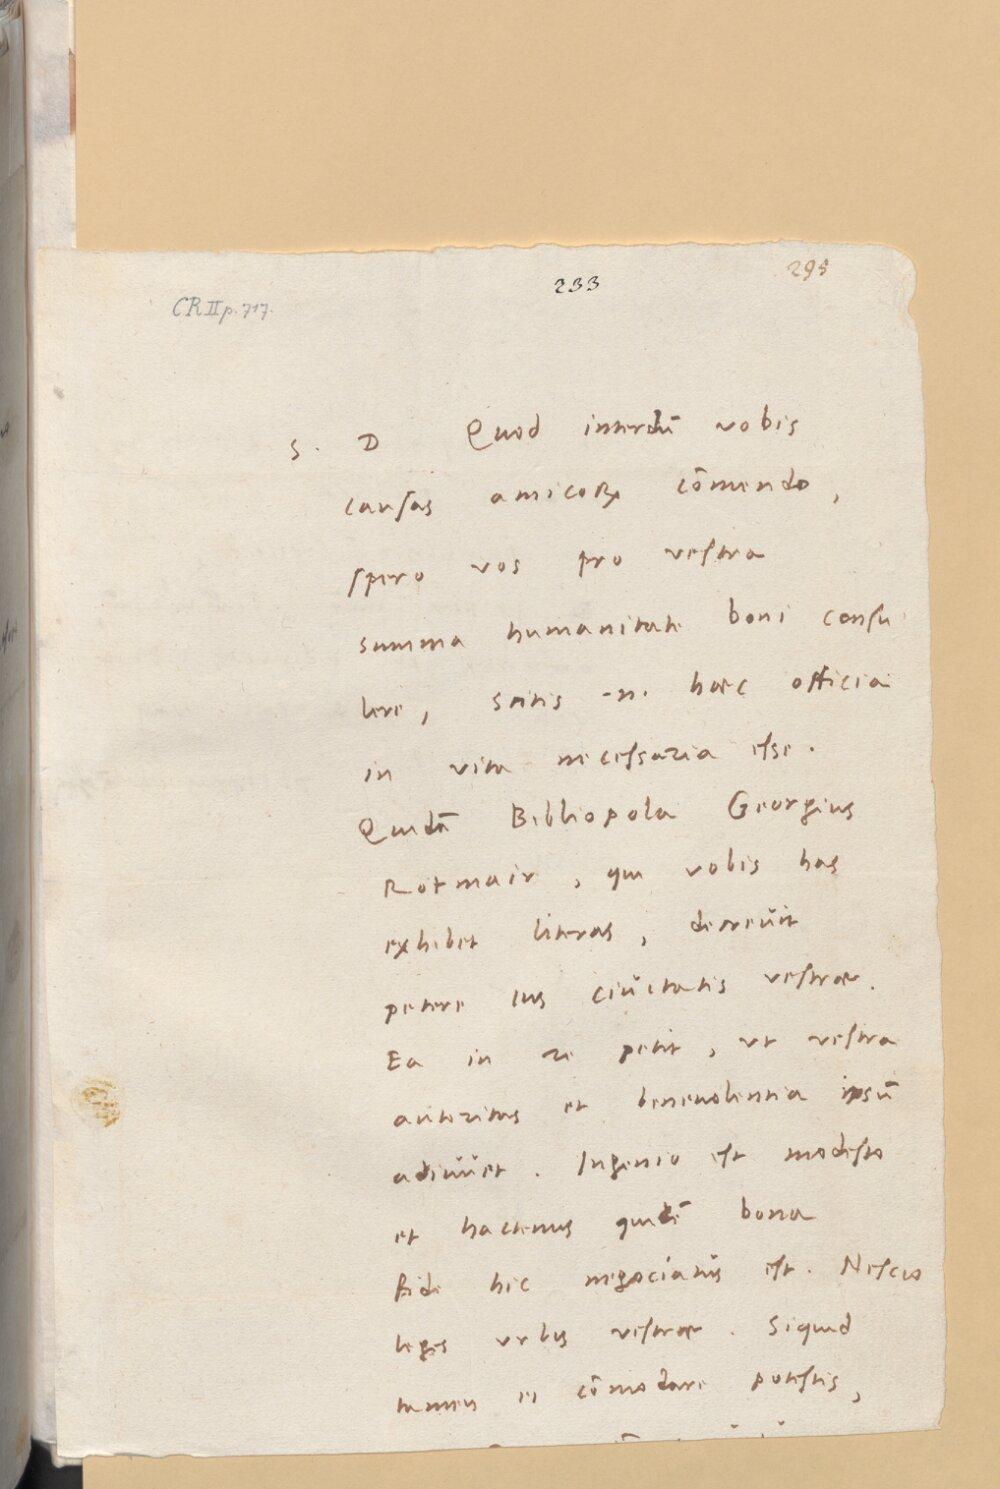 233
295
CR II p. 717.
S. D Quod interdū vobis
causas amicoꝝ cōmendo,
spero vos pro vestra
summa humanitate boni consu
lere, scitis .n. haec officia
in vita necessaria esse.
Quidā Bibliopola Georgius
Rotmair, qui vobis has
exhibet literas, decreuit
petere ius ciuitatis vestrae.
Ea in re petit, vt vestra
autoritas et beneuolentia ipsū
adiuuet. Ingenio est modesto
et hactenus quidē bona
fide hic negociatus est. Nescio
leges vrbis vestrae. Siquid
tamen ei cōmodare potestis,